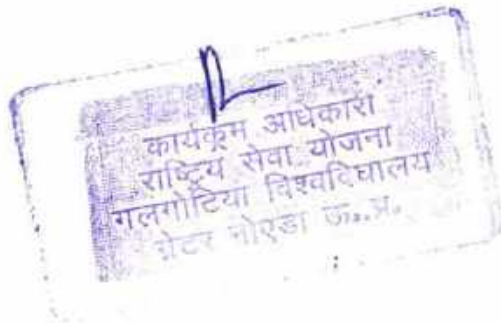 कार्यक्रम अधिकारी
राष्ट्रिय सेवा योजना
गलगोटिया विश्वविद्यालय
ग्रेटर नोएडा ऊ..प्र.